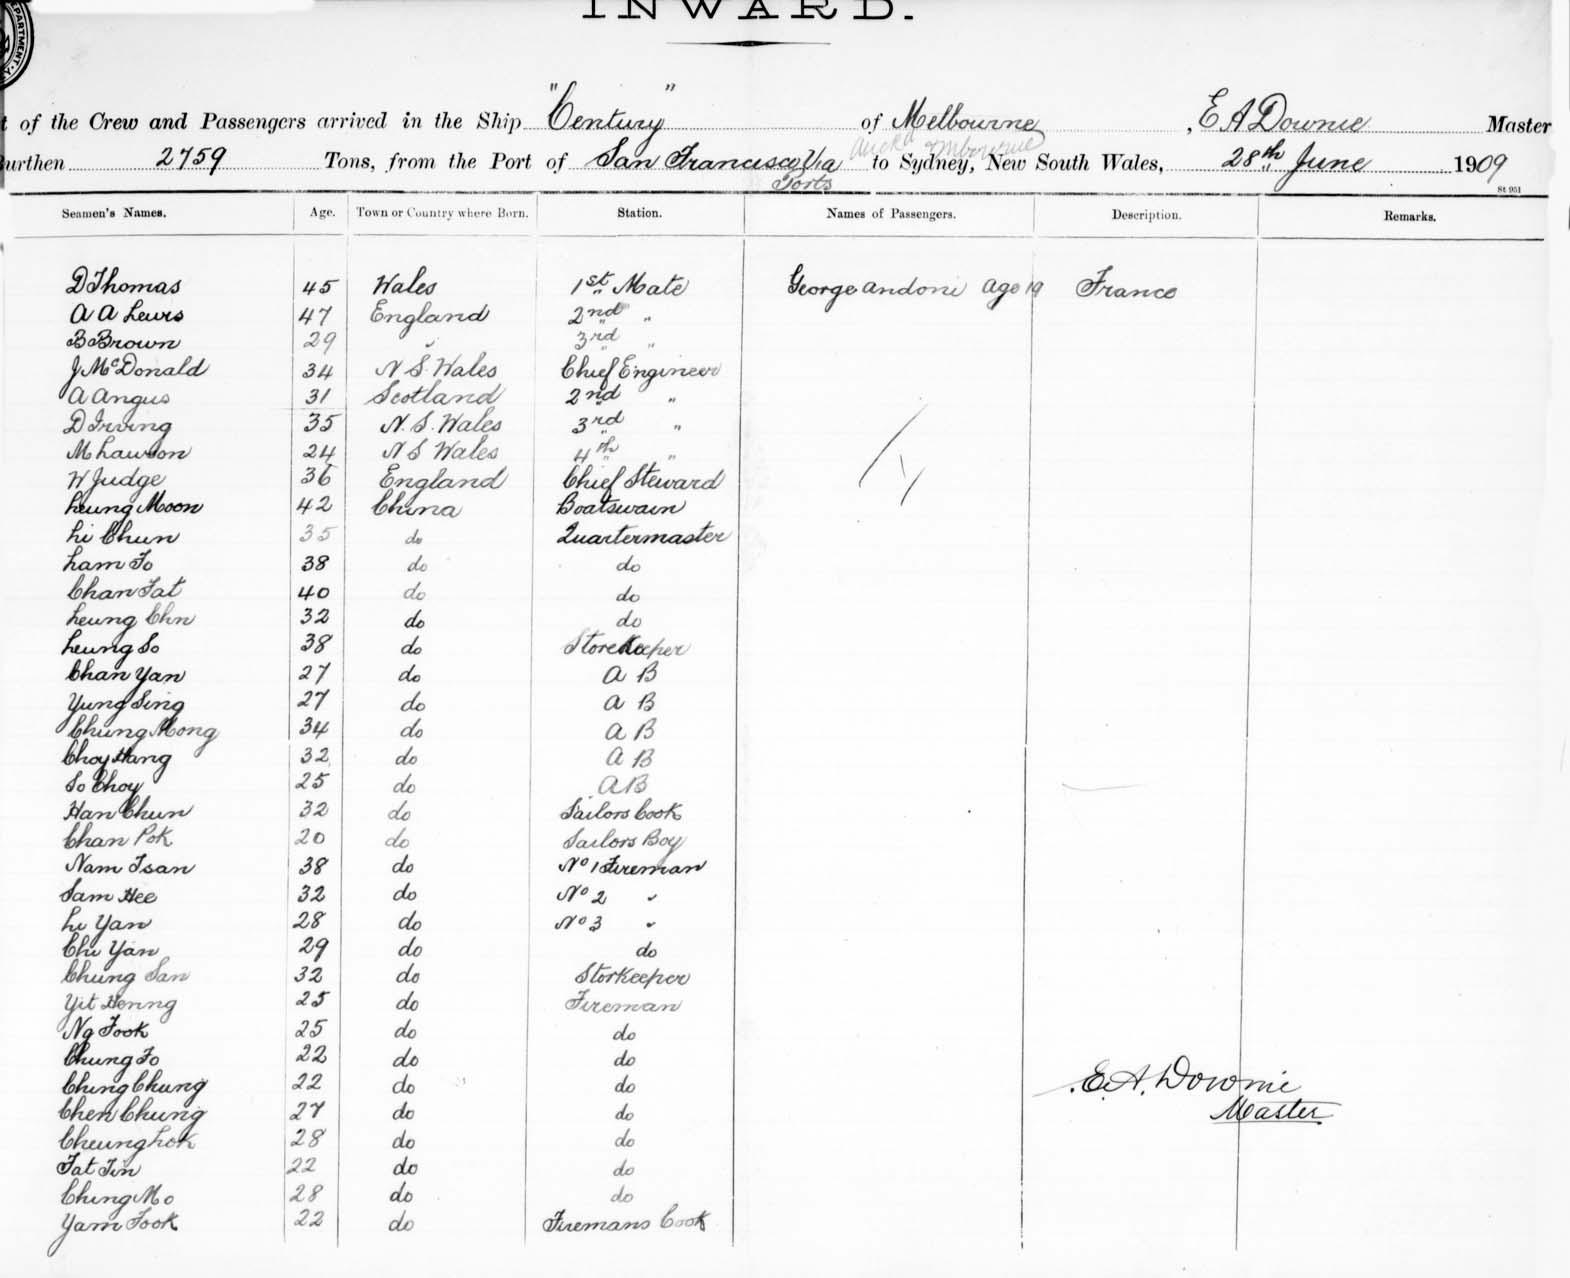 INWARD.
of the Crew and Passengers arrived in the Ship "Century" of Melbourne, E A Downie Master
Burthen 2759 Tons, from the Port of San Francisco Via Ports to Sydney, New South Wales, 28th June 1909
St 951
Seamen's Names. Age. Town or Country where Born. Station. Names of Passengers. Description. Remarks.
D Thomas 45 Wales 1st Mate George andoni age 19 France
A A Lewis 47 England 2nd "
B Brown 29 " 3rd "
J McDonald 34 N S. Wales Chief Engineer
A Angus 31 Scotland 2nd "
D Irving 35 N. S. Wales 3rd "
M Lawson 24 N S Wales 4th "
W Judge 36 England Chief Steward
Leung Moon 42 China Boatswain
Li Chun 35 do Quartermaster
Lam Fo 38 do do
Chan Fat 40 do do
Leung Chn 32 do do
Leung So 38 do Storekeeper
Chan Yan 27 do A B
Yung Sing 27 do A B
Chung Mong 34 do A B
Choy Hang 32 do A B
So Choy 25 do A B
Han Chun 32 do Sailors Cook
Chan Pok 20 do Sailors Boy
Nam Tsan 38 do No 1 Fireman
Sam Hee 32 do No 2 "
Li Yan 28 do No 3 "
Chi Yan 29 do do
Chung San 32 do Storkeeper
Yit Henng 25 do Fireman
Ng Fook 25 do do
Chung Fo 22 do do
Ching Chung 22 do do
Chen Chung 27 do do
E. A. Downie
Master
Cheung Lok 28 do do
Fat Tin 22 do do
Ching Mo 28 do do
Yam Fook 22 do Firemans Cook